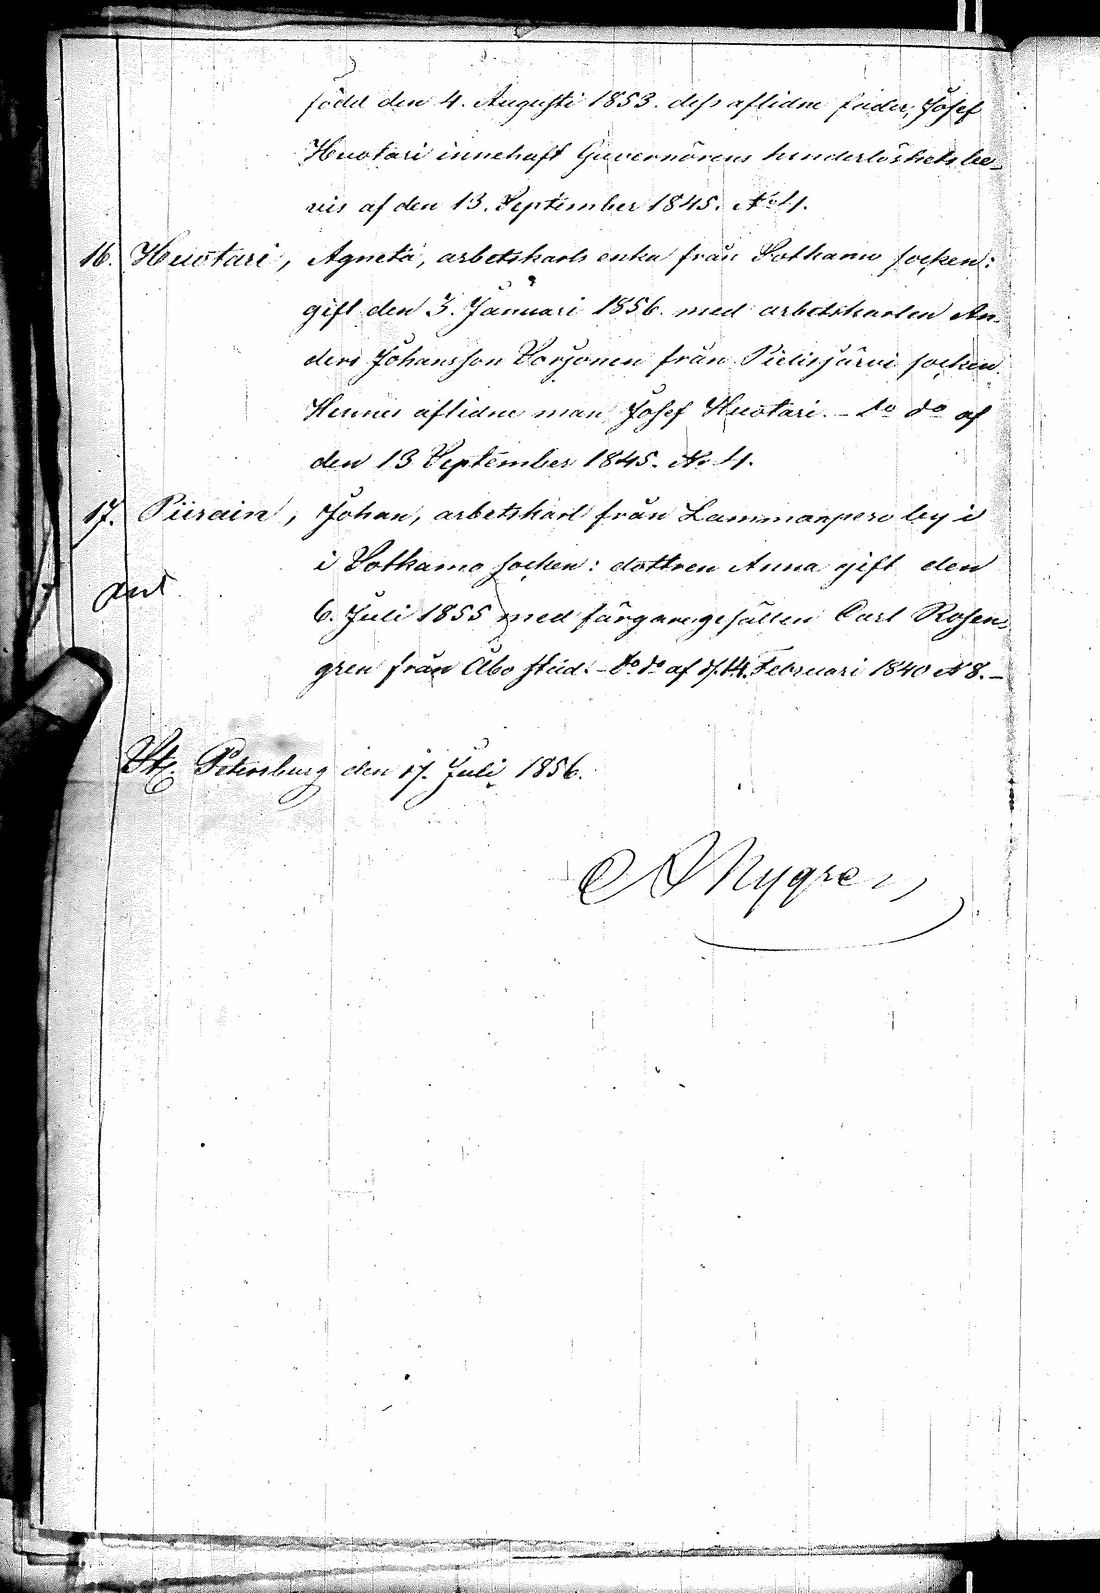 född den 4. Augusti 1853. dess aflidne fader, Josef
Huotari innehaft Guvernörens hinderlöshetsbe-
vis af den 13. September 1845. No 4.
16. Huotari, Agneta, arbetskarls enka från Sotkamo socken:
gift den 3. Januari 1856. med arbetskarlen An-
ders Johansson Sorjonen från Pielisjärvi socken.
Hennes aflidne man Josef Huotari. - do do af
den 13 September 1845. No 4.
17. Piirain, Johan, arbetskarl från Lammanpero by i
i Sotkamo socken: dottren Anna gift den
6. Juli 1855 med färgaregesällen Carl Rosen-
gren från Åbo stad. - do do af d. 14. Februari 1840 N 8. -
St. Petersburg den 17. Juli 1856.
Nygren